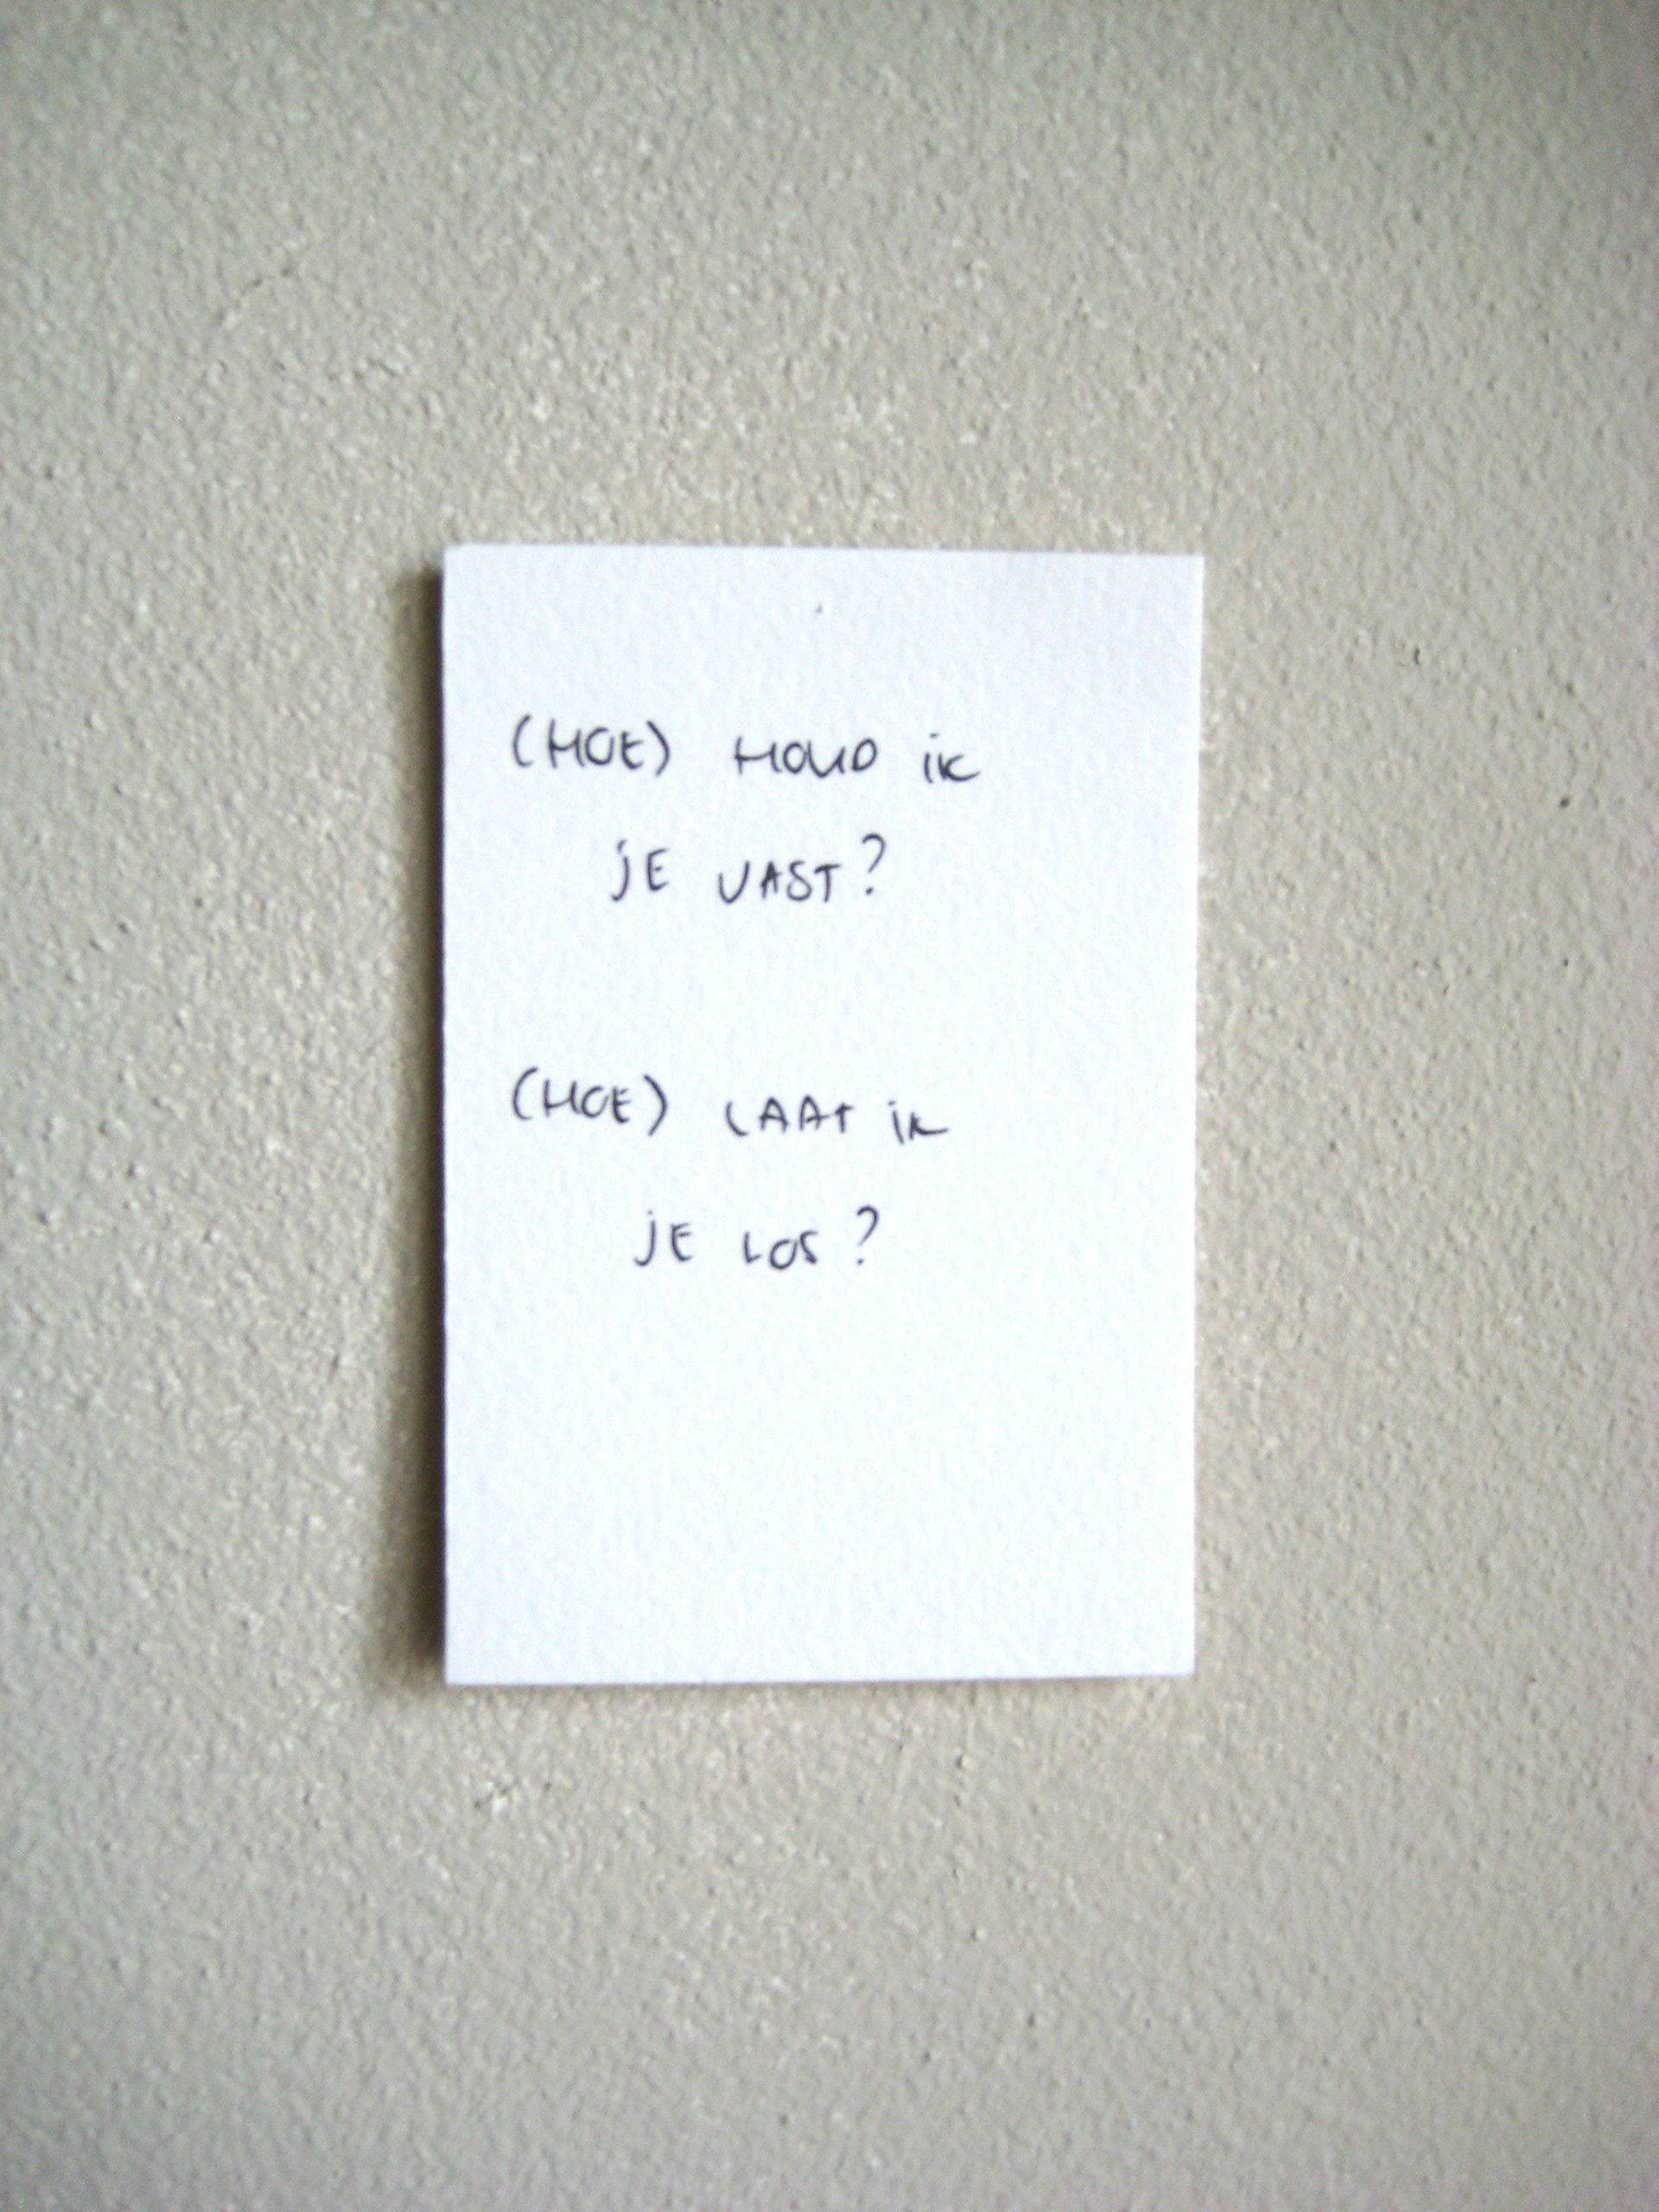 (HOE) HOUD iK
jE VAST?
(HOE) LAAT iK
jE LOS?